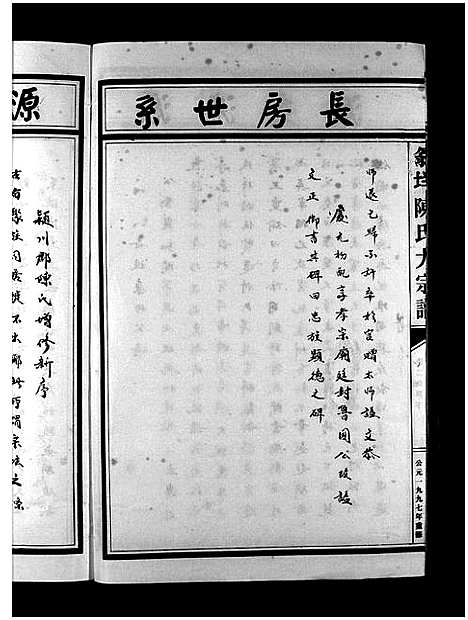 陳氏大宗譜
公元一九九七年重修
長房世系
師退乞歸不許卒於官贈太師諡文恭
慶元初配享孝宗廟庭封魯國公改諡
文正御書其碑曰忠旌顯德之碑
源
潁川郡陳氏增修新序
古者聚族同居徙不出鄉此所謂宗法之